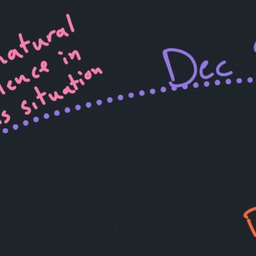 natural
lence in
is situation
Dec